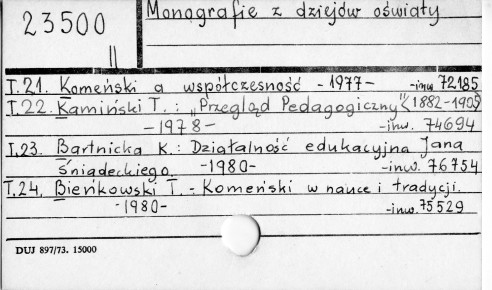 23500
II
Monografie z dziejów oświaty
T.21. Komeński a współczesność -1977- -inw 72185
T.22. Kamiński T.: „Przegląd Pedagogiczny" <1882-1905>
-1978- -inw. 74694
T.23. Bartnicka K.: Działalność edukacyjna Jana
Śniadeckiego. -1980- -inw. 76754
T.24. Bieńkowski T. - Komeński w nauce i tradycji.
-1980- -inw. 75529
DUJ 897/73. 15000